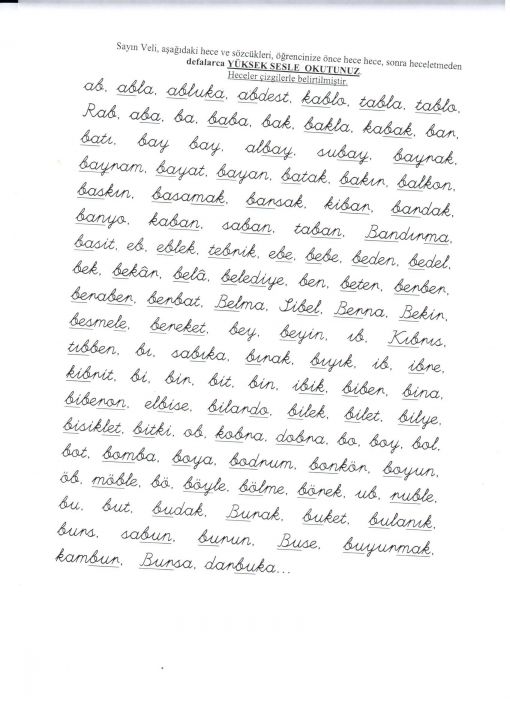 Sayın Veli, aşağıdaki hece ve sözcükleri, öğrencinize önce hece hece, sonra heceletmeden
defalarca YÜKSEK SESLE OKUTUNUZ.
Heceler çizgilerle belirtilmiştir.
ab, abla, abluka, abdest, kablo, tabla, tablo,
Rab, aba, ba, baba, bak, bakla, kabak, ban,
batı, bay bay, albay, subay, bayrak,
bayram, bayat, bayan, batak, bakın, balkon,
baskın, basamak, barsak, kibar, bardak,
banyo, kaban, saban, taban, Bandırma,
basit, eb, eblek, tebrik, ebe, bebe, beden, bedel,
bek, bekâr, belâ, belediye, ben, beter, berber,
beraber, berbat, Belma, Sibel, Berna, Bekir,
besmele, bereket, bey, beyin, ıb, Kıbrıs,
tıbben, bı, sabıka, bırak, bıyık, ib, ibre,
kibrit, bi, bir, bit, bin, ibik, biber, bina,
biberon, elbise, bilardo, bilek, bilet, bilye,
bisiklet, bitki, ob, kobra, dobra, bo, boy, bol,
bot, bomba, boya, bodrum, bonkör, boyun,
öb, möble, bö, böyle, bölme, börek, ub, ruble,
bu, but, budak, Burak, buket, bulanık,
burs, sabun, burun, Buse, buyurmak,
kambur, Bursa, darbuka...